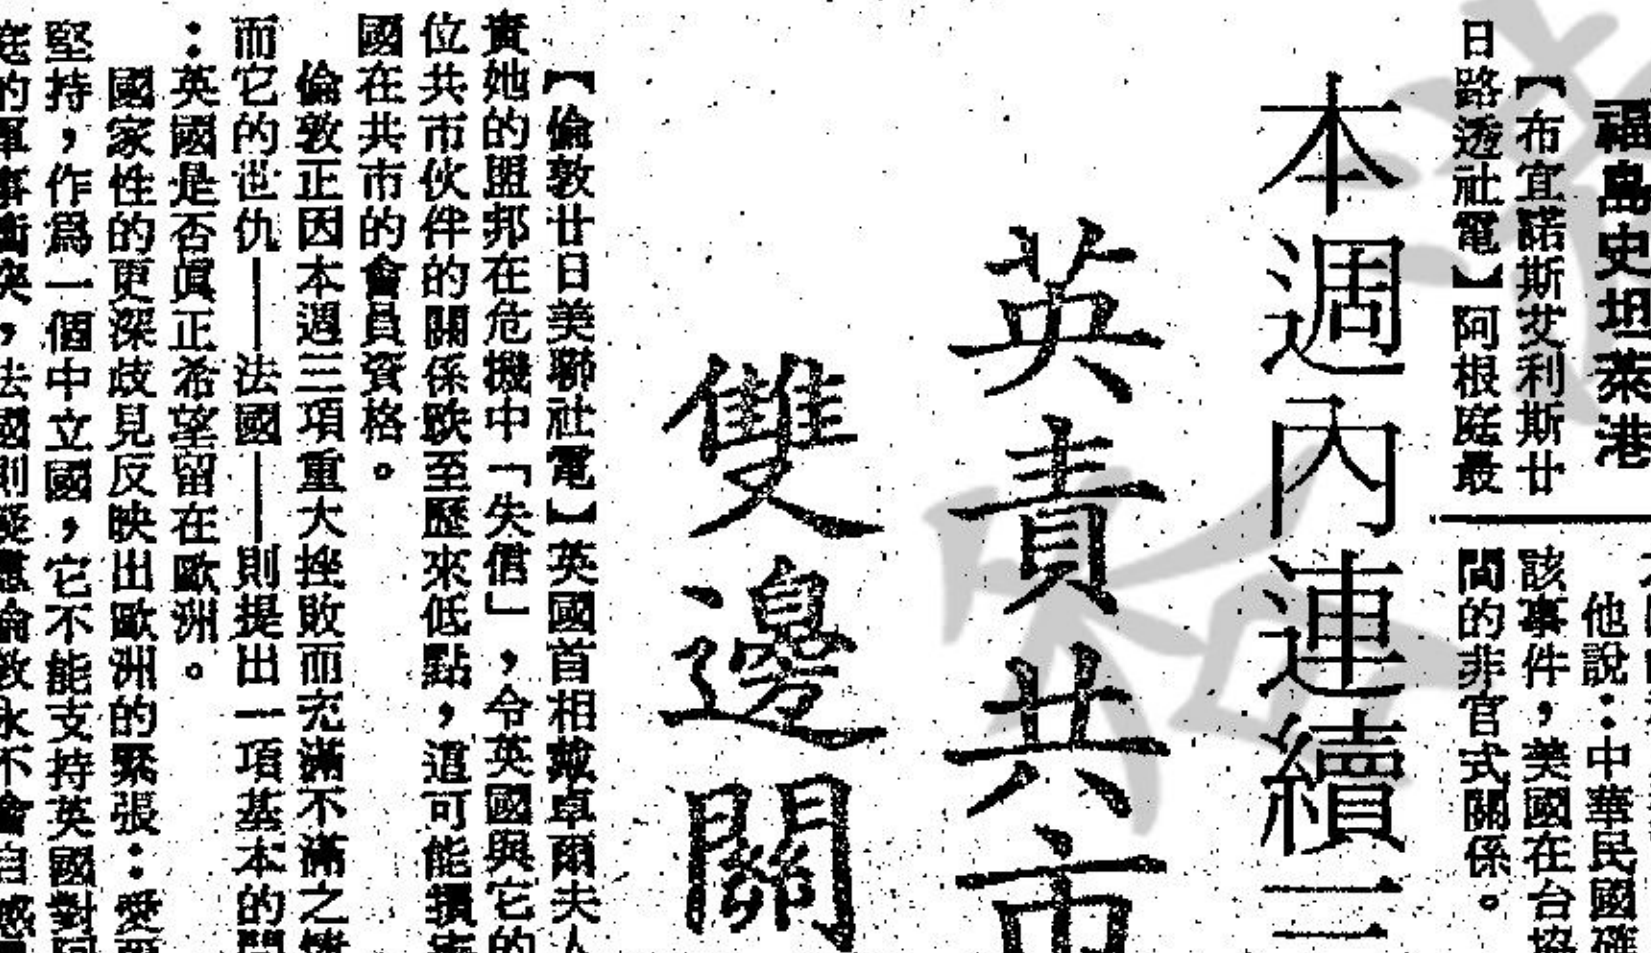 福島史坦萊港
【布宜諾斯艾利斯廿
日路透社電】阿根庭最
他說：中華民國確
該事件，美國在台協
間的非官式關係。
本週內連續三
英責共市
雙邊關
【倫敦廿日美聯社電】英國首相戴卓爾夫人
責她的盟邦在危機中「失信」，令英國與它的
位共市伙伴的關係跌至歷來低點，這可能損害
國在共市的會員資格。
倫敦正因本週三項重大挫敗而充滿不滿之情
而它的世仇——法國——則提出一項基本的問
：英國是否眞正希望留在歐洲。
國家性的更深歧見反映出歐洲的緊張：愛
堅持，作爲一個中立國，它不能支持英國對阿
庭的軍事衝突，法國則疑慮倫敦永不會自